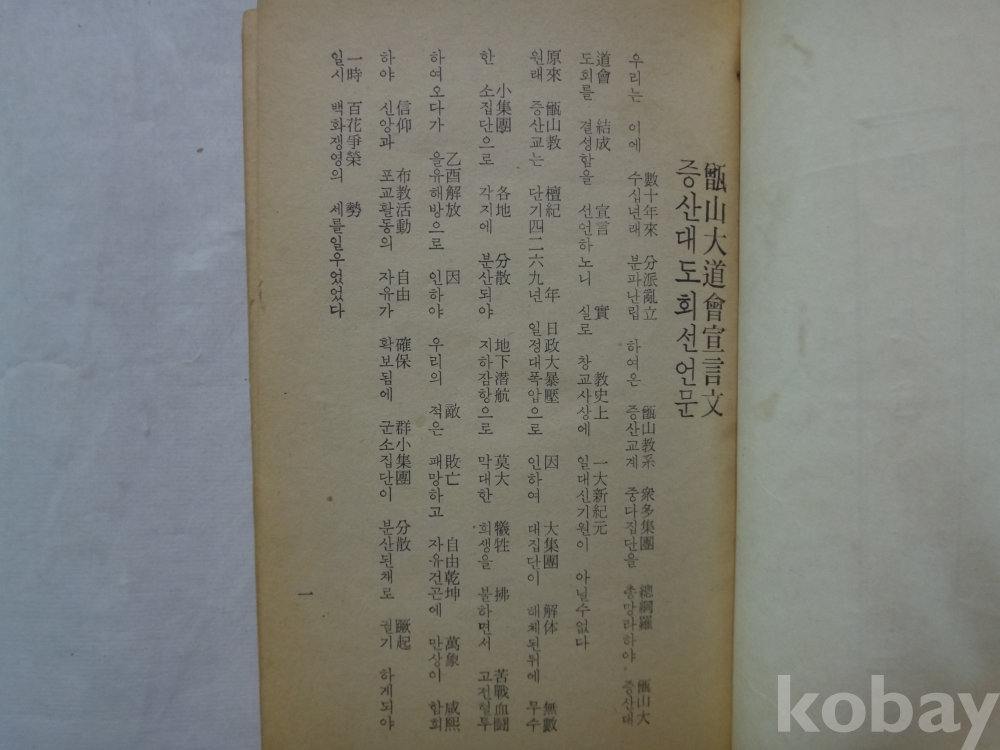 甑山大道會宣言文
증산대도회선언문
數十年來 分派亂立 甑山敎系 衆多集團 總網羅 甑山大
우리는 이에 수십년래 분파난립 하여온 증산교계 중다집단을 총망라하야 증산대
道會 結成 宣言 實 敎史上 一大新紀元
도회를 결성함을 선언하노니 실로 창교사상에 일대신기원이 아닐수없다
原來 甑山敎 檀紀 年 日政大暴壓 因 大集團 解体 無數
원래 증산교는 단기四二六九년 일정대폭압으로 인하여 대집단이 해체된뒤에 무수
小集團 各地 分散 地下潜航 莫大 犧牲 拂 苦戰血鬪
한 소집단으로 각지에 분산되야 지하잠항으로 막대한 희생을 불하면서 고전혈투
乙酉解放 因 敵 敗亡 自由乾坤 萬象 咸熙
하여오다가 을유해방으로 인하야 우리의 적은 패망하고 자유건곤에 만상이 함희
信仰 布敎活動 自由 確保 群小集團 分散 蹶起
하야 신앙과 포교활동의 자유가 확보됨에 군소집단이 분산된채로 궐기 하게되야
一時 百花爭榮 勢
일시 백화쟁영의 세를일우었었다
一
kobay